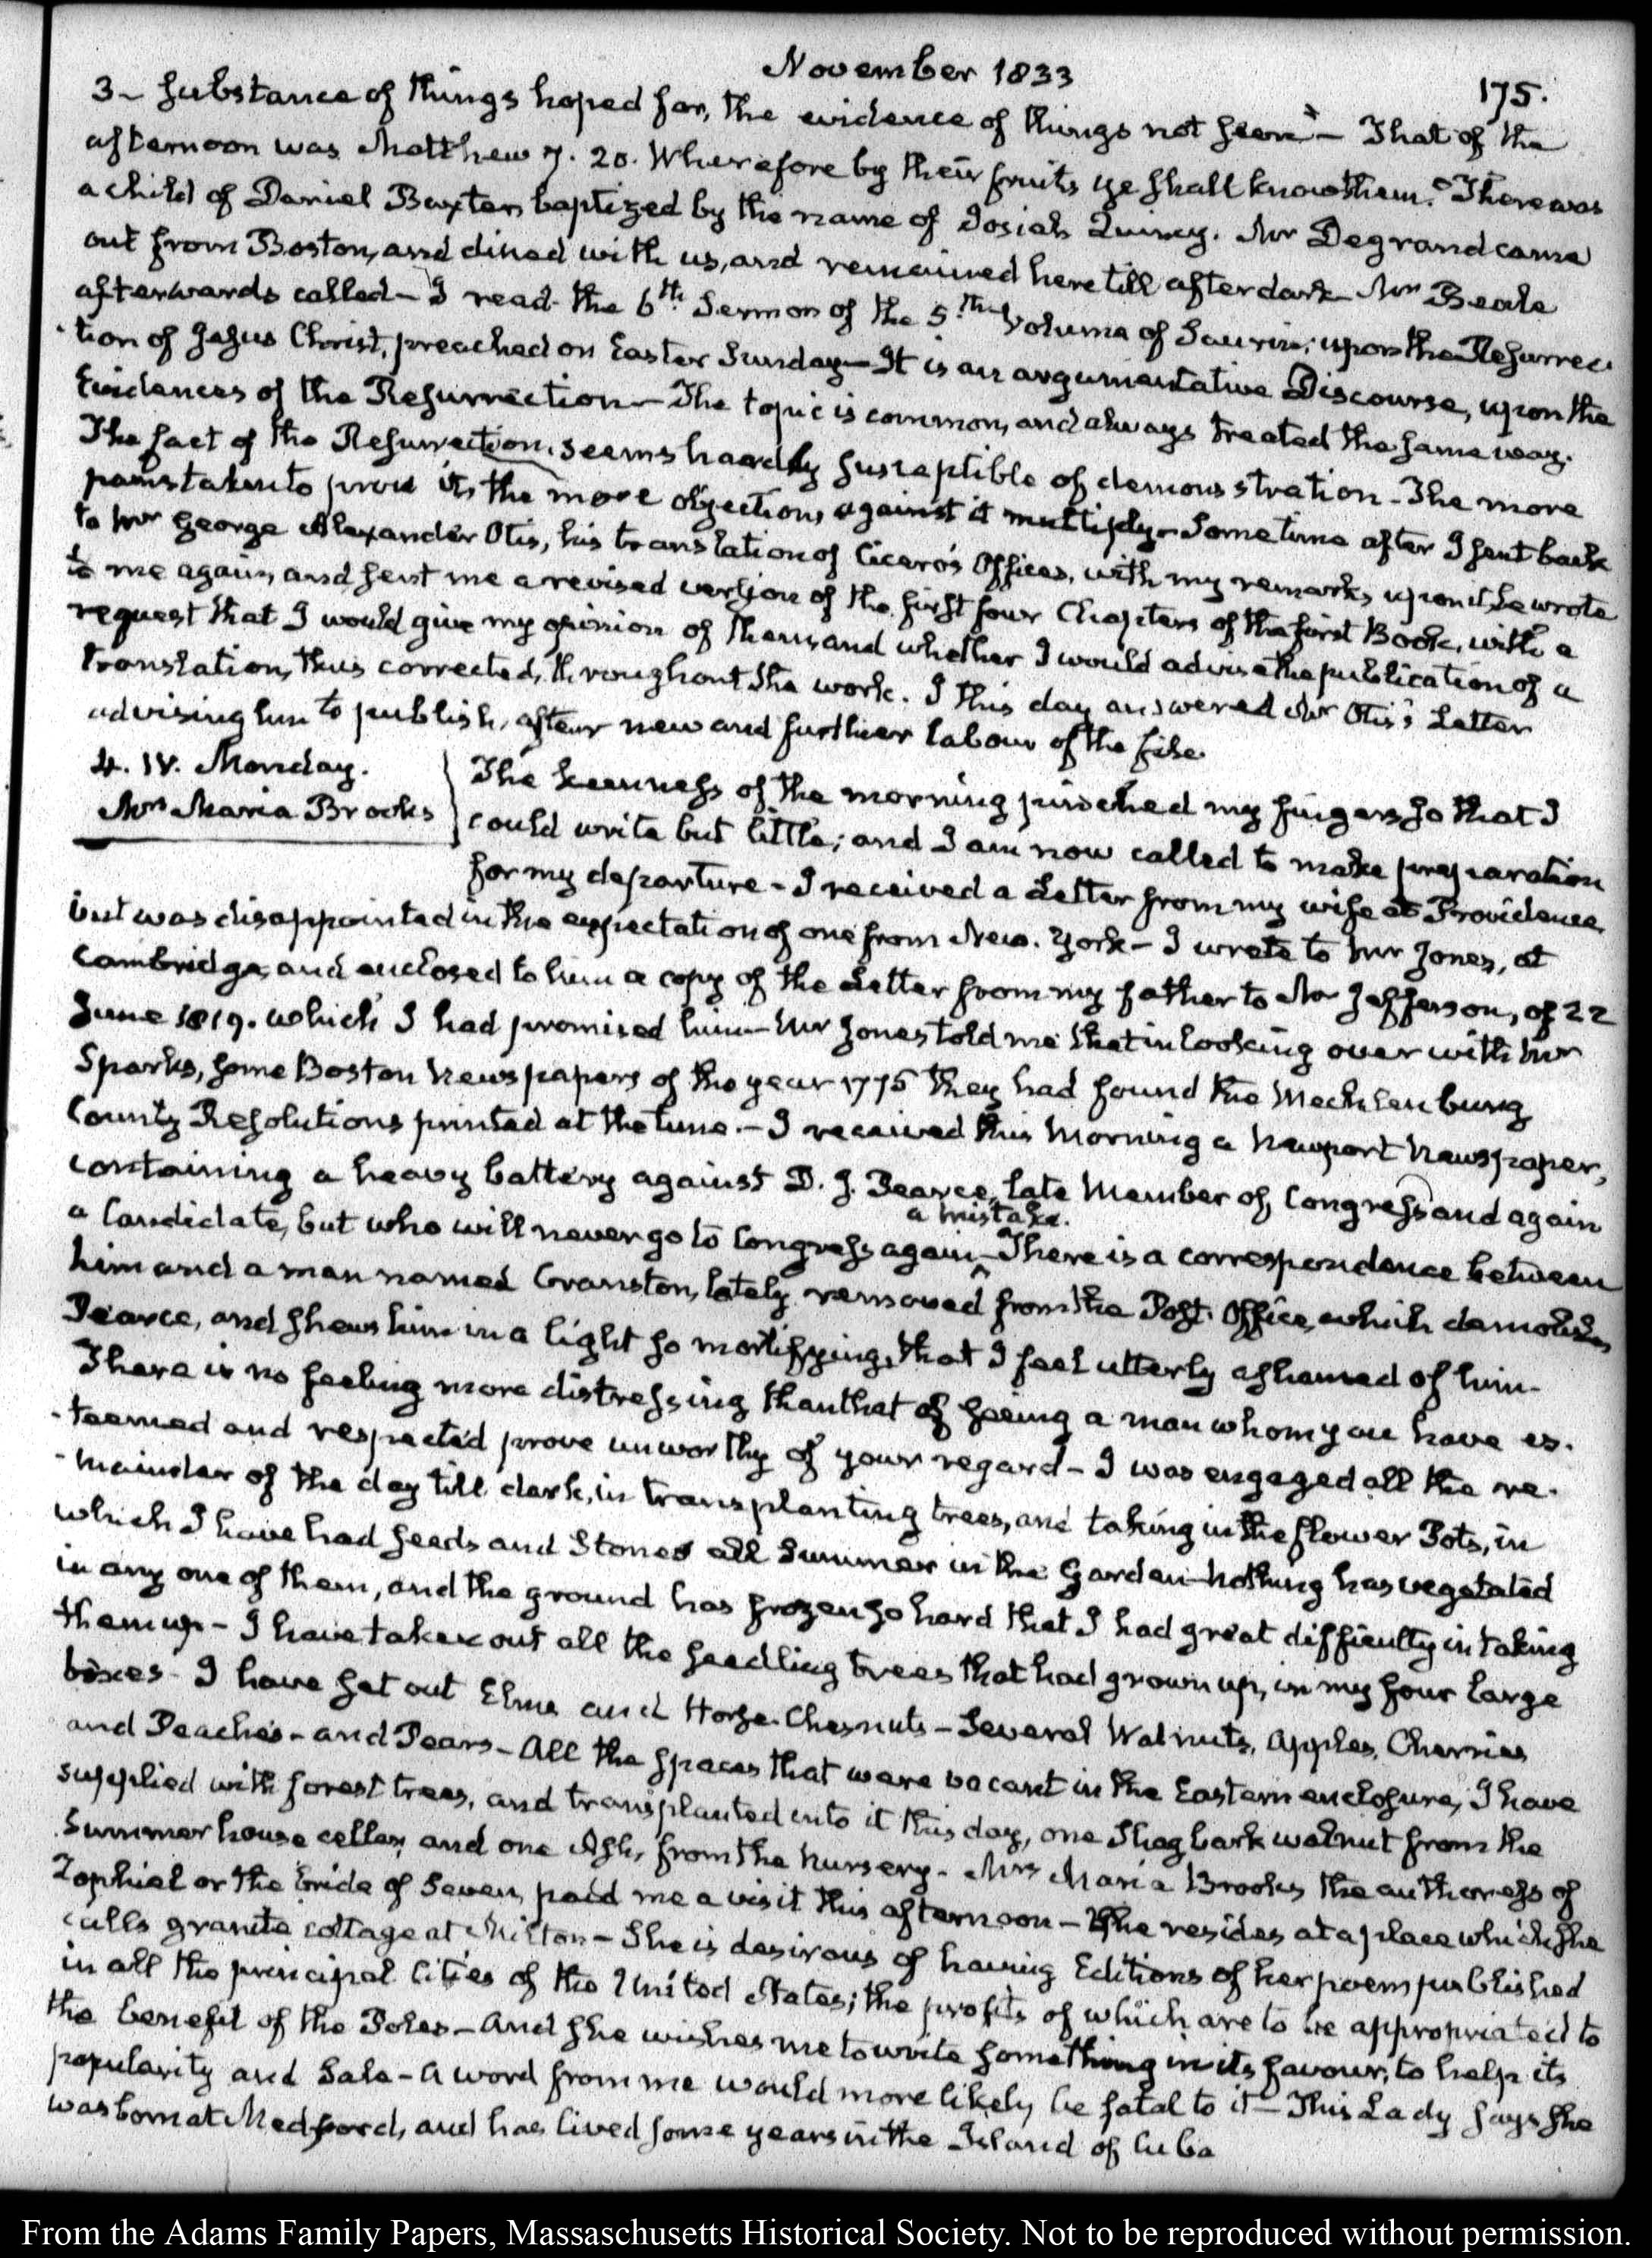 November 1833
175.
3 - substance of things hoped for, the evidence of things not seen" - That of the
afternoon was Matthew 7. 20. Wherefore by their fruits ye shall know them." There was
a child of Daniel Baxter, baptized by the name of Josiah Quincy. Mr Degrand came
out from Boston, and dined with us, and remained here till after dark - Mr Beale
afterwards called - I read the 6th Sermon of the 5th volume of Saurin; upon the Resurrec-
tion of Jesus Christ, preached on Easter Sunday - It is an argumentative Discourse, upon the
Evidences of the Resurrection - The topic is common, and always treated the same way.
The fact of the Resurrection, seems hardly susceptible of demonstration - The more
pains taken to prove it, the more objections against it multiply - Some time after I sent back
to Mr George Alexander Otis, his translation of Cicero's Offices, with my remarks upon it he wrote
to me again, and sent me a revised version of the first four Chapters of the first Book, with a
request that I would give my opinion of them, and whether I would advise the publication of a
translation, thus corrected, throughout the work. I this day answered Mr Otis's Letter
advising him to publish, after new and further labour of the file.
4. IV. Monday.
Mrs Maria Brooks
The keenness of the morning pinched my fingers so that I
could write but little; and I am now called to make preparation
for my departure - I received a Letter from my wife at Providence
but was disappointed in the expectation of one from New-York - I wrote to Mr Jones, at
Cambridge, and enclosed to him a copy of the Letter from my father to Mr Jefferson, of 22
June 1819. which I had promised him - Mr Jones told me that in looking over with Mr
Sparks, some Boston Newspapers of the year 1775 they had found the Mecklenburg
County Resolutions printed at the time. - I received this Morning a Newport Newspaper,
containing a heavy battery against D. J. Pearce, late Member of Congress and again
a Candidate, but who will never go to Congress again - There is a correspondence between
a mistake.
him and a man named Cranston, lately removed ^ from the Post-Office, which demolishes
Pearce, and shews him in a light so mortifying, that I feel utterly ashamed of him -
There is no feeling more distressing than that of seeing a man whom you have es-
-teemed and respected prove unworthy of your regard - I was engaged all the re-
-mainder of the day till dark, in transplanting trees, and taking in the flower Pots, in
which I have had seeds and Stones all Summer in the Garden - nothing has vegetated
in any one of them, and the ground has frozen so hard that I had great difficulty in taking
them up - I have taken out all the seedling trees that had grown up, in my four large
boxes - I have set out Elms and Horse-Chesnuts - Several Walnuts, Apples, Cherries
and Peaches - and Pears - All the spaces that were vacant in the Eastern enclosure, I have
supplied with forest trees, and transplanted into it this day, one Shagbark walnut from the
Summer house cellar, and one Ash, from the Nursery - Mrs Maria Brooks the authoress of
Zophiel or the bride of Seven, paid me a visit this afternoon - She resides at a place which she
calls granite cottage at Milton - She is desirous of having Editions of her poem published
in all the principal Cities of the United States; the profits of which are to be appropriated to
the benefit of the Poles - and she wishes me to write something in its favour, to help its
popularity and Sale - A word from me would more likely be fatal to it - This Lady says she
was born at Medford, and has lived some years in the Island of Cuba
From the Adams Family Papers, Massaschusetts Historical Society. Not to be reproduced without permission.